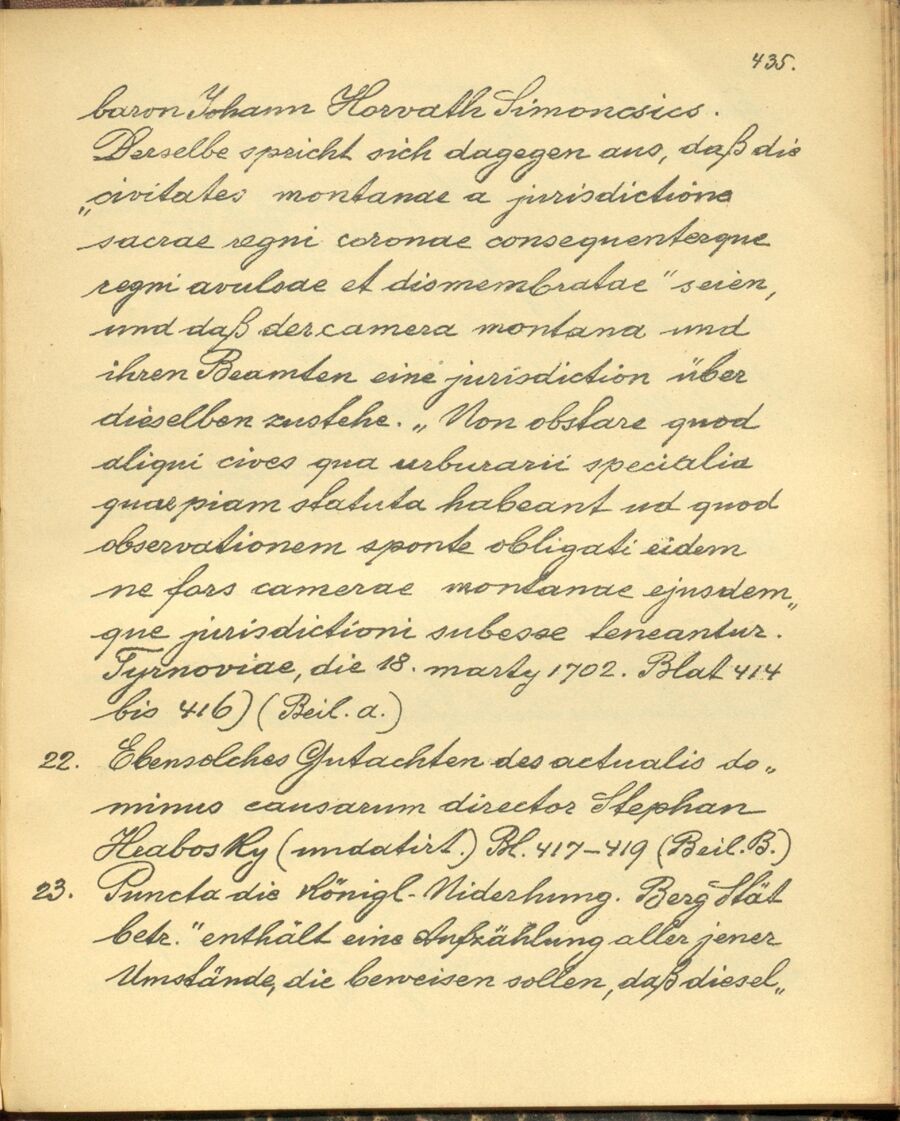 435.
baron Johann Horvath Simoncsics.
Derselbe spricht sich dagegen aus, daß die
„civitates montanae a jurisdictione
sacrae regni coronae consequenterque
regni avulsae et dismembratae" seien,
und daß der camera montana und
ihren Beamten eine jurisdiction über
dieselben zustehe. „Non obstare quod
aliqui cives qua urburarii specialia
quaepiam statuta habeant ud quod
observationem sponte obligati eidem
ne fors camerae montanae ejusdem„
que jurisdictioni subesse teneantur.
Tyrnoviae, die 18. marty 1702. Blat 414
bis 416) (Beil. a.)
22. Ebensolches Gutachten des actualis do„
minus causarum director Stephan
Hrabosky (undatirt.) Bl. 417–419 (Beil. B.)
23. Puncta die Königl. Niderhung. Berg Stät
betr." enthält eine Aufzählung aller jener
Umstände, die beweisen sollen, daß diesel„